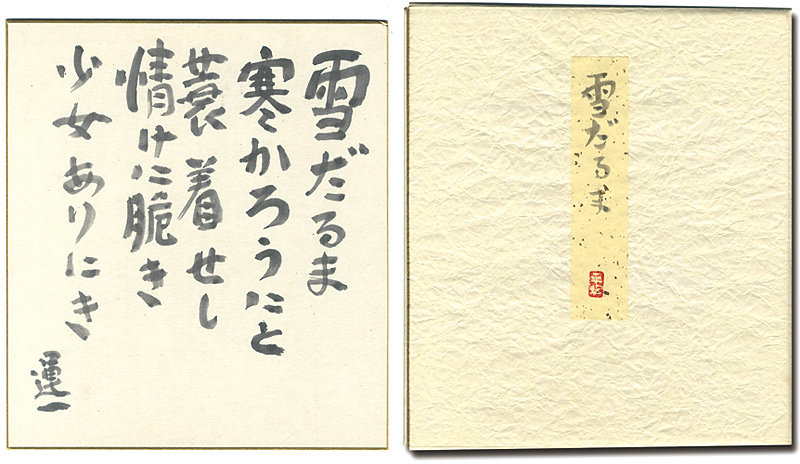 雪だるま
寒かろうにと
蓑着せし
情けに脆き
少女ありにき
運一
雪だるま